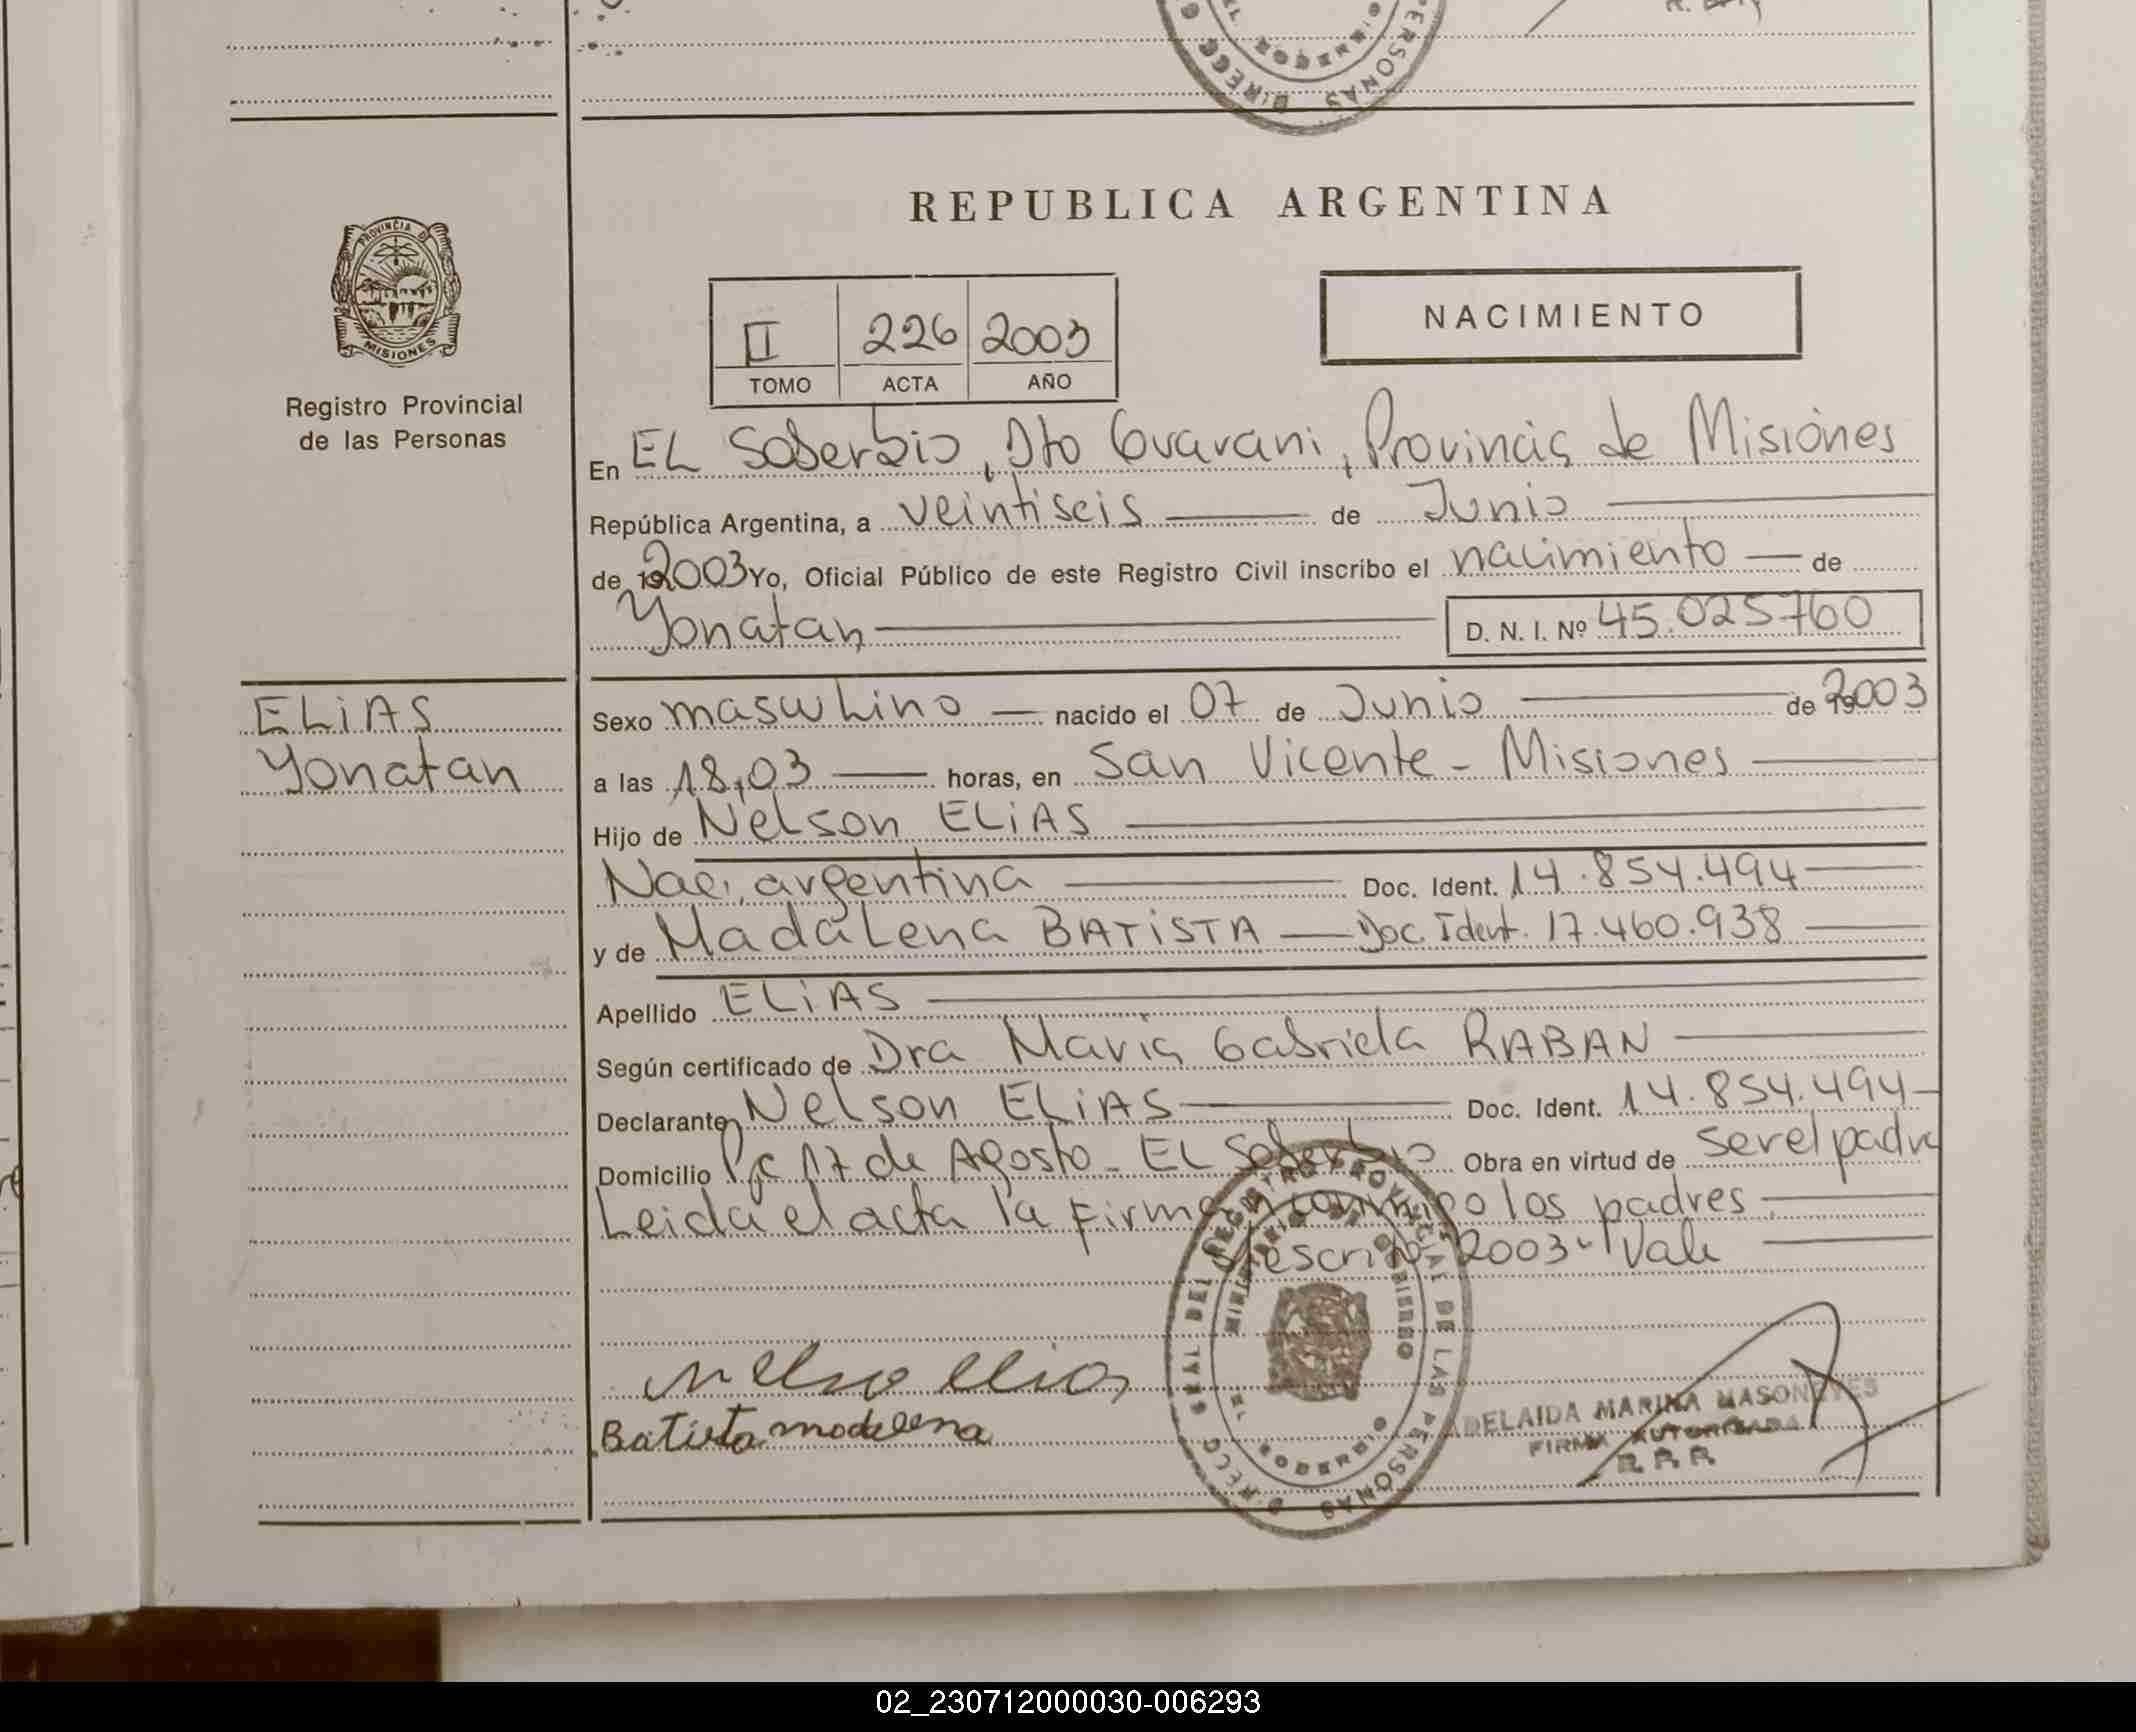 REPUBLICA ARGENTINA
PROVINCIA DE
MISIONES
Registro Provincial
de las Personas
II 226 2003
TOMO ACTA AÑO
NACIMIENTO
En EL Soberbio, Dto Guarani, Provincia de Misiones
República Argentina, a veintiseis de Junio
de 192003 Yo, Oficial Público de este Registro Civil inscribo el nacimiento de
Yonatan D. N. I. Nº 45.025760
ELiAS
Yonatan
Sexo masculino nacido el 07 de Junio de 192003
a las 18,03 horas, en San Vicente - Misiones
Hijo de Nelson ELiAS
Nac. argentina Doc. Ident. 14.854.494
y de Madalena BATiSTA Doc. Ident. 17.460.938
Apellido ELiAS
Según certificado de Dra Maria Gabriela RABAN
Declarante Nelson ELiAS Doc. Ident. 14.854.494
Domicilio 17 de Agosto - EL Soberbio Obra en virtud de ser el padre
Leida el acta la Firman conmigo los padres
2003 Vale
Nelso elias
Batista madalena
REGISTRO PROVINCIAL DE LAS PERSONAS
MINISTERIO DE GOBIERNO
EL SOBERBIO
ADELAIDA MARINA
FIRMA AUTORIZADA
02_230712000030-006293